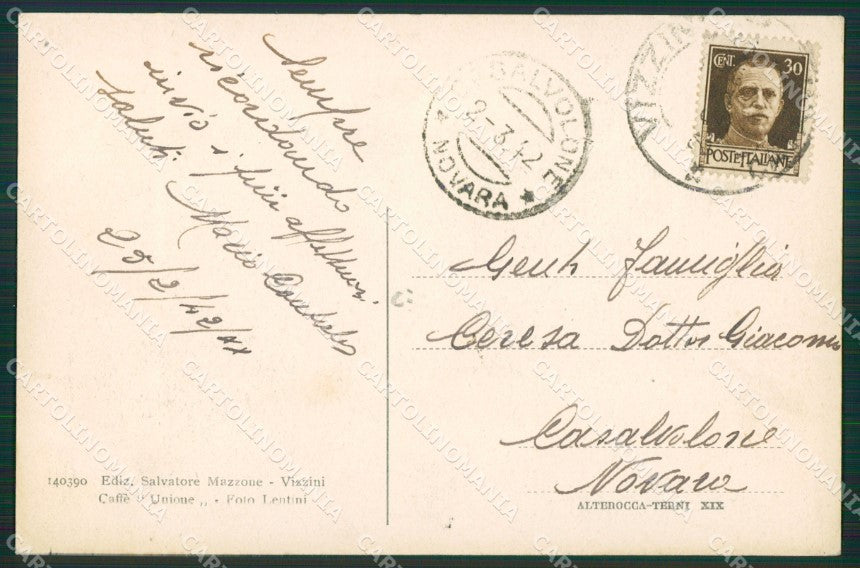 Sempre
ricordando
invio i più affettuosi
saluti Mario
25/2/42/XX
140390 Ediz. Salvatore Mazzone - Vizzini
Caffè "Unione„ - Foto Lentini
CASALVOLONE
2-3.42
NOVARA
VIZZINI
CENT. 30
POSTE ITALIANE
Gent. Famiglia
Ceresa Dottor Giacomo
Casalvolone
Novara
ALTEROCCA-TERNI XIX
CARTOLINOMANIA